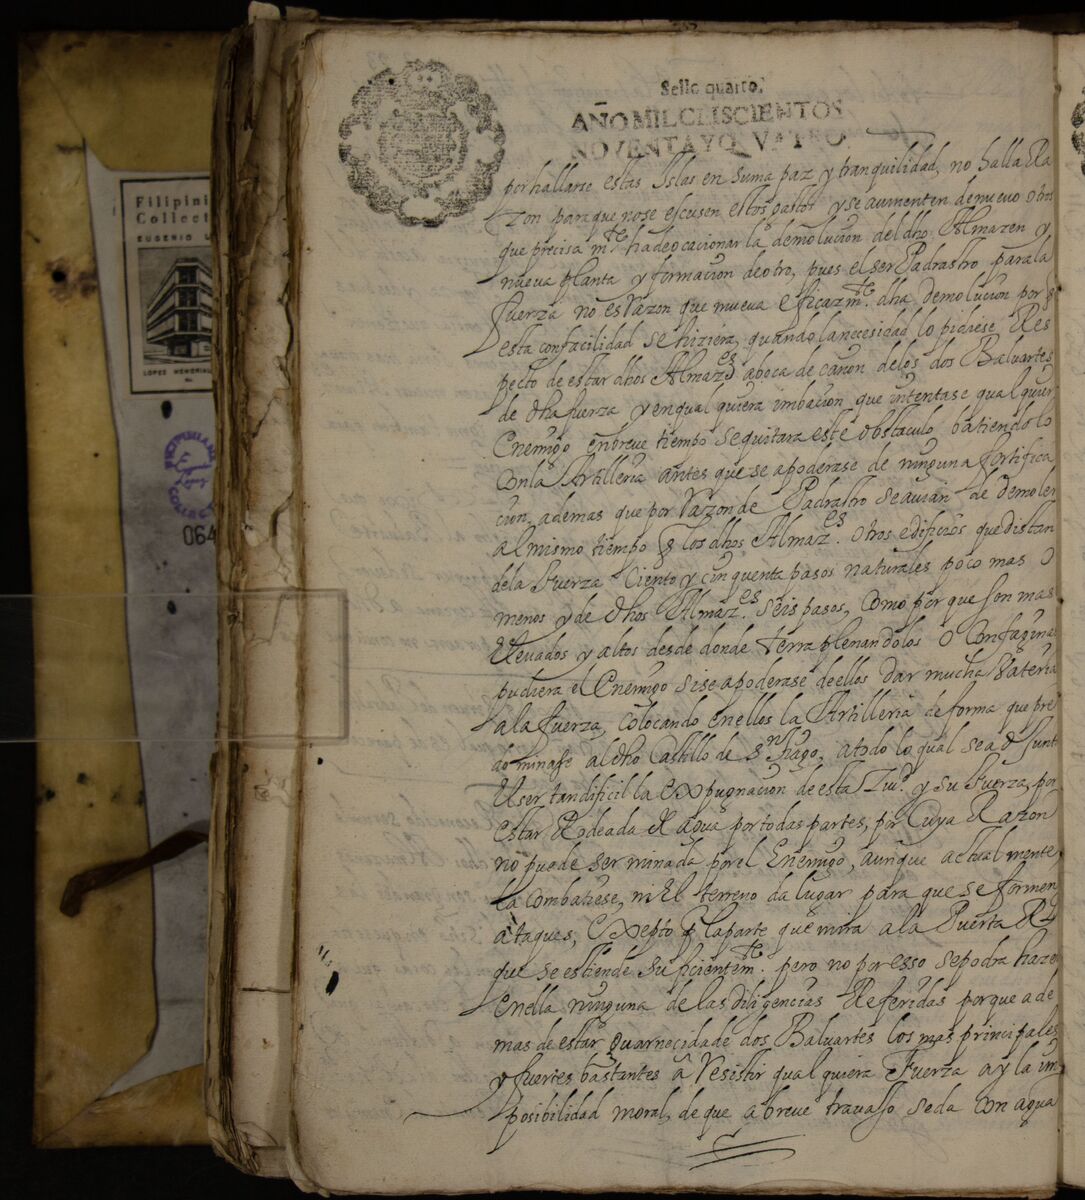 Filipini
Collect
EUGENIO L
LOPEZ MEMORIAL
No.
FILIPINIANA
COLLEC
064
Sello quarto,
AÑO MIL CEISCIENTOS
NOVENTA Y QVATRO.
por hallarse estas Islas en suma paz y tranquilidad, no halla Ra
zon para que nose escusen estos gastos y se aumenten denuevo otros
que precisa mte. hadeocacionar la demolucion del dho Almazen y
nueva planta y formacion deotro, pues el ser Padrastro parala
fuerza no es razon que mueva eficazmte. dha demolucion por q
esta confacilidad se hiziera, quando la necesidad lo pidiese Res
pecto de estar dhos Almazes aboca de cañon delos dos Baluartes
de dha fuerza y en qual quiera imbacion que intentase qual quier
Enemigo enbreve tiempo se quitara este obstaculo batiendolo
Conla Artilleria antes que se apoderase de ninguna fortifica
cion, ademas que por razon de Padrastro se avian de demoler
al mismo tiempo q los dhos Almazes. otros edificios que distan
dela Fuerza Ciento y cinquenta pasos naturales poco mas o
menos y de dhos Almazes. seis pasos, Como por que son mas
Elevados y altos desde donde terraplenandolos o Con fagina
pudiera el Enemigo si se apoderase deellos dar mucha Bateria
ala fuerza, colocando enellos la Artilleria deforma que pre
dominasse al dho Castillo de Sntiago, atodo lo qual se ad junt
El ser tan dificil la expugnacion de esta Ciud. y su Fuerza, por
estar Rodeada de agua por todas partes, por Cuya Razon
no puede ser minada por el Enemigo, aunque actual mente
la combatiese, ni El terreno da lugar para que se formen
ataques, Exepto por la parte que mira ala Puerta Rl
que se estiende suficientemte. pero no por esso se podra hazer
enella ninguna de las diligencias Referidas porque ade
mas de estar Guarnecida de dos Baluartes los mas principales
y fuertes bastantes â resistir qual quiera Fuerza ay la im
posibilidad moral, de que a breve travajo se da con agua